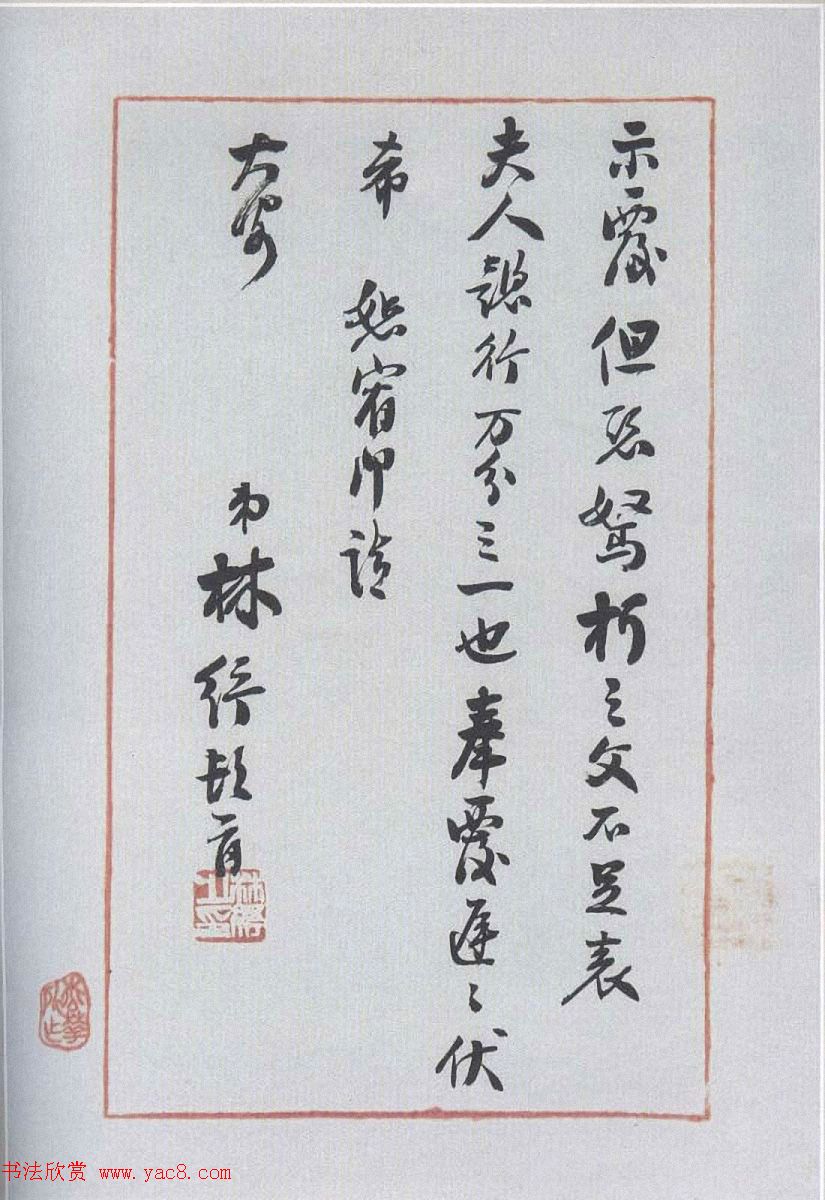 示覆但恐驽析之文不足表
夫人懿行万分之一也奉覆遲遲伏
希 恕宥即請
大安
弟林紓頓首
书法欣赏 www.yac8.com